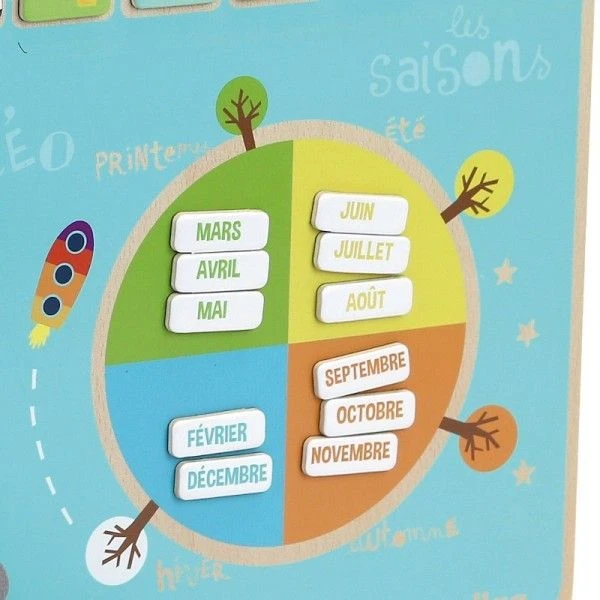 les
saisons
ÉO
PRINTemps
été
MARS
AVRIL
MAI
JUIN
JUILLET
AOÛT
SEPTEMBRE
OCTOBRE
NOVEMBRE
FÉVRIER
DÉCEMBRE
hiver
automne